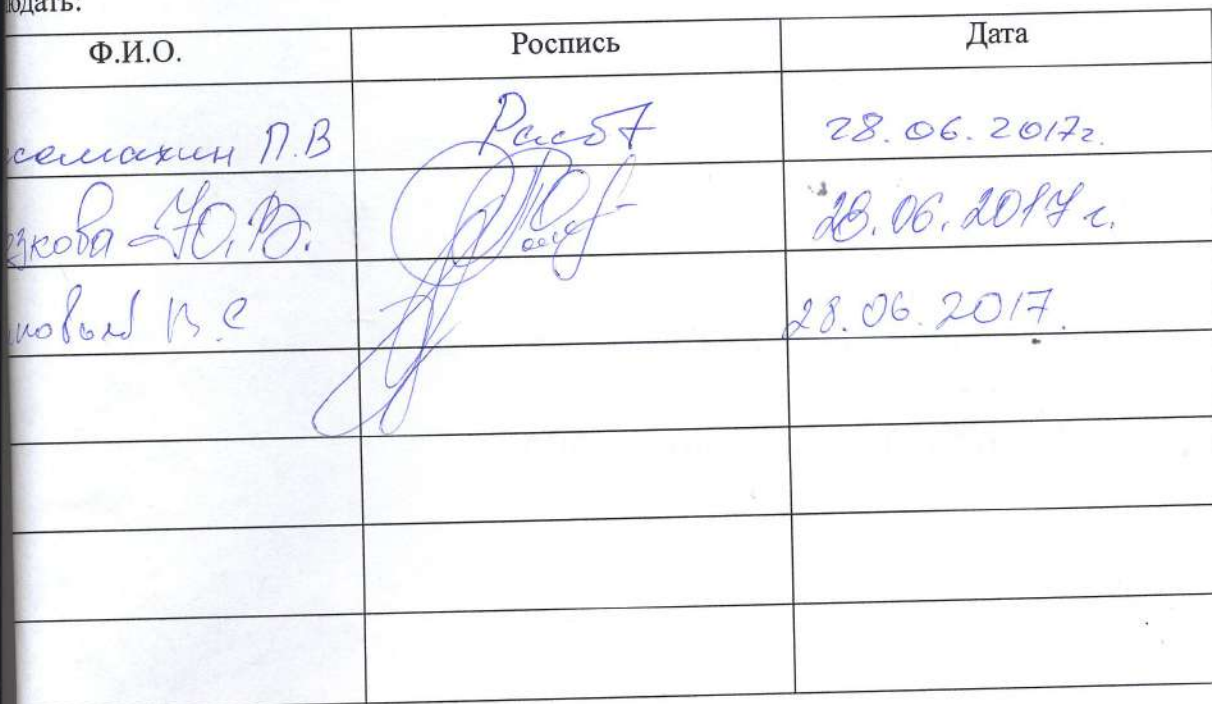 юдать:
Ф.И.О. Роспись Дата
П.В 28.06.2017г.
зкова Ю.В. 28.06.2017 г.
В.С 28.06.2017.